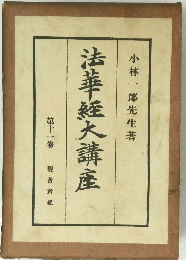 小林一郎先生著
法華經大講座
第十一卷